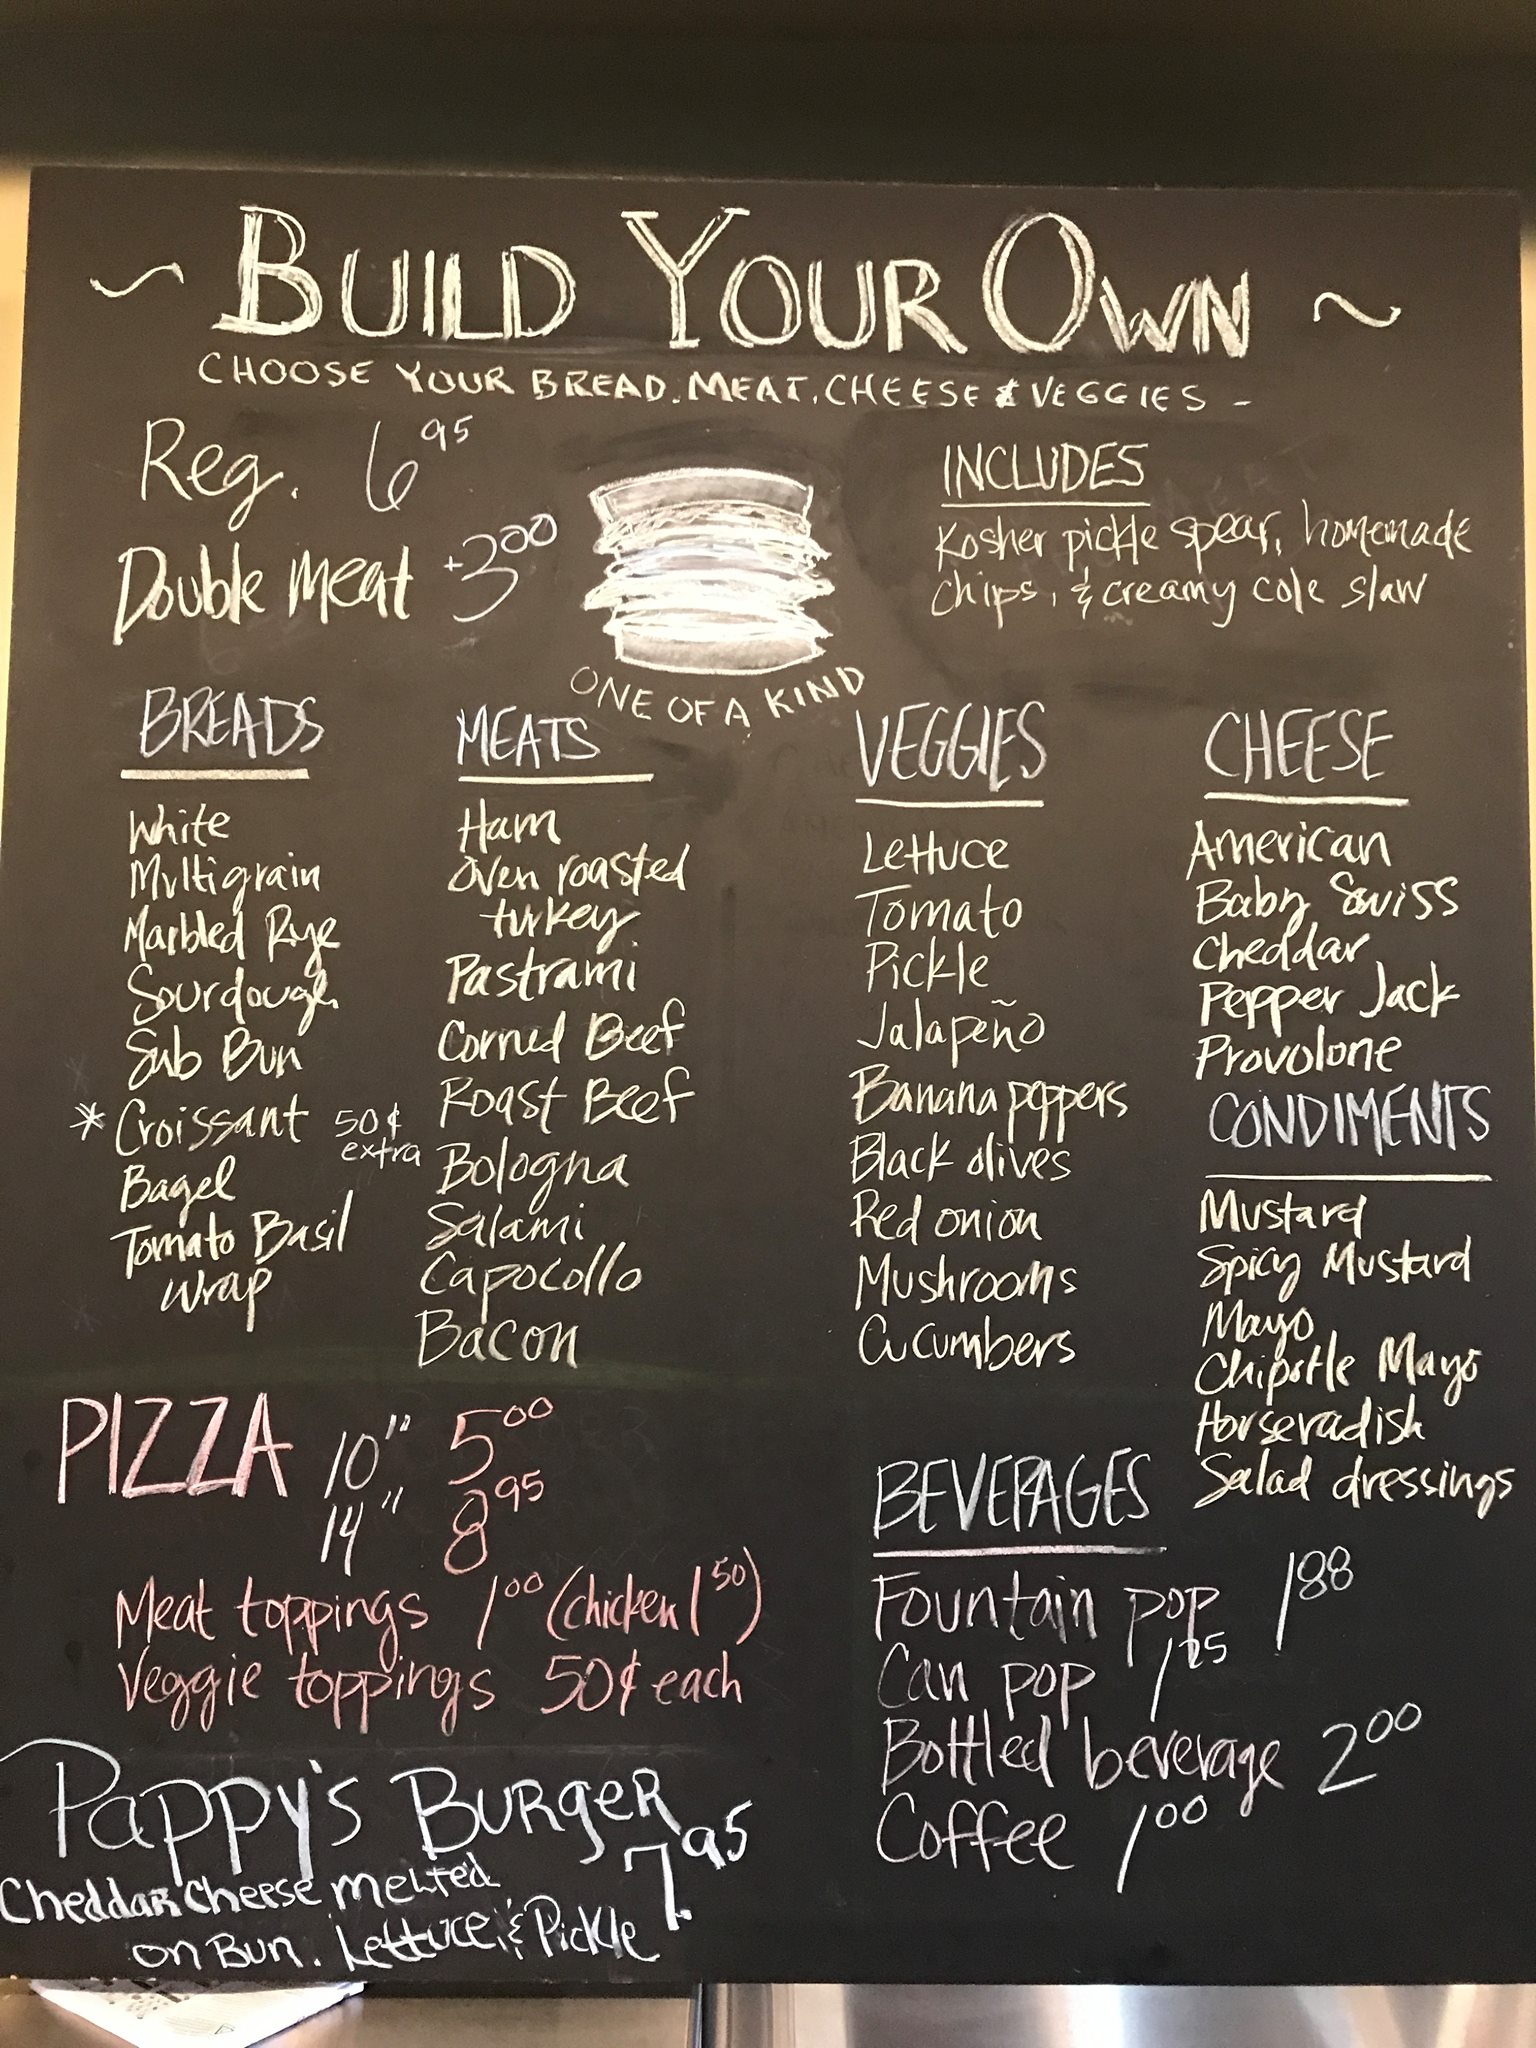 ~ BUILD YOUR OWN ~
CHOOSE YOUR BREAD, MEAT, CHEESE & VEGGIES -
Reg. 6 95
Double Meat +3 00
ONE OF A KIND
INCLUDES
Kosher pickle spear, homemade
chips, & creamy cole slaw
BREADS
White
Multigrain
Marbled Rye
Sourdough
Sub Bun
* Croissant 50¢
extra
Bagel
Tomato Basil
Wrap
MEATS
Ham
Oven roasted
turkey
Pastrami
Corned Beef
Roast Beef
Bologna
Salami
Capocollo
Bacon
VEGGIES
Lettuce
Tomato
Pickle
Jalapeño
Banana peppers
Black olives
Red onion
Mushrooms
Cucumbers
CHEESE
American
Baby Swiss
Cheddar
Pepper Jack
Provolone
CONDIMENTS
Mustard
Spicy Mustard
Mayo
Chipotle Mayo
Horseradish
Salad dressings
PIZZA 10" 5 00
14" 8 95
Meat toppings 1 00 (chicken 1 50)
Veggie toppings 50¢ each
Pappy's Burger
7.95
Cheddar Cheese melted
on Bun. Lettuce, & Pickle
BEVERAGES
Fountain pop 1 88
Can pop 1 25
Bottled beverage 2 00
Coffee 1 00